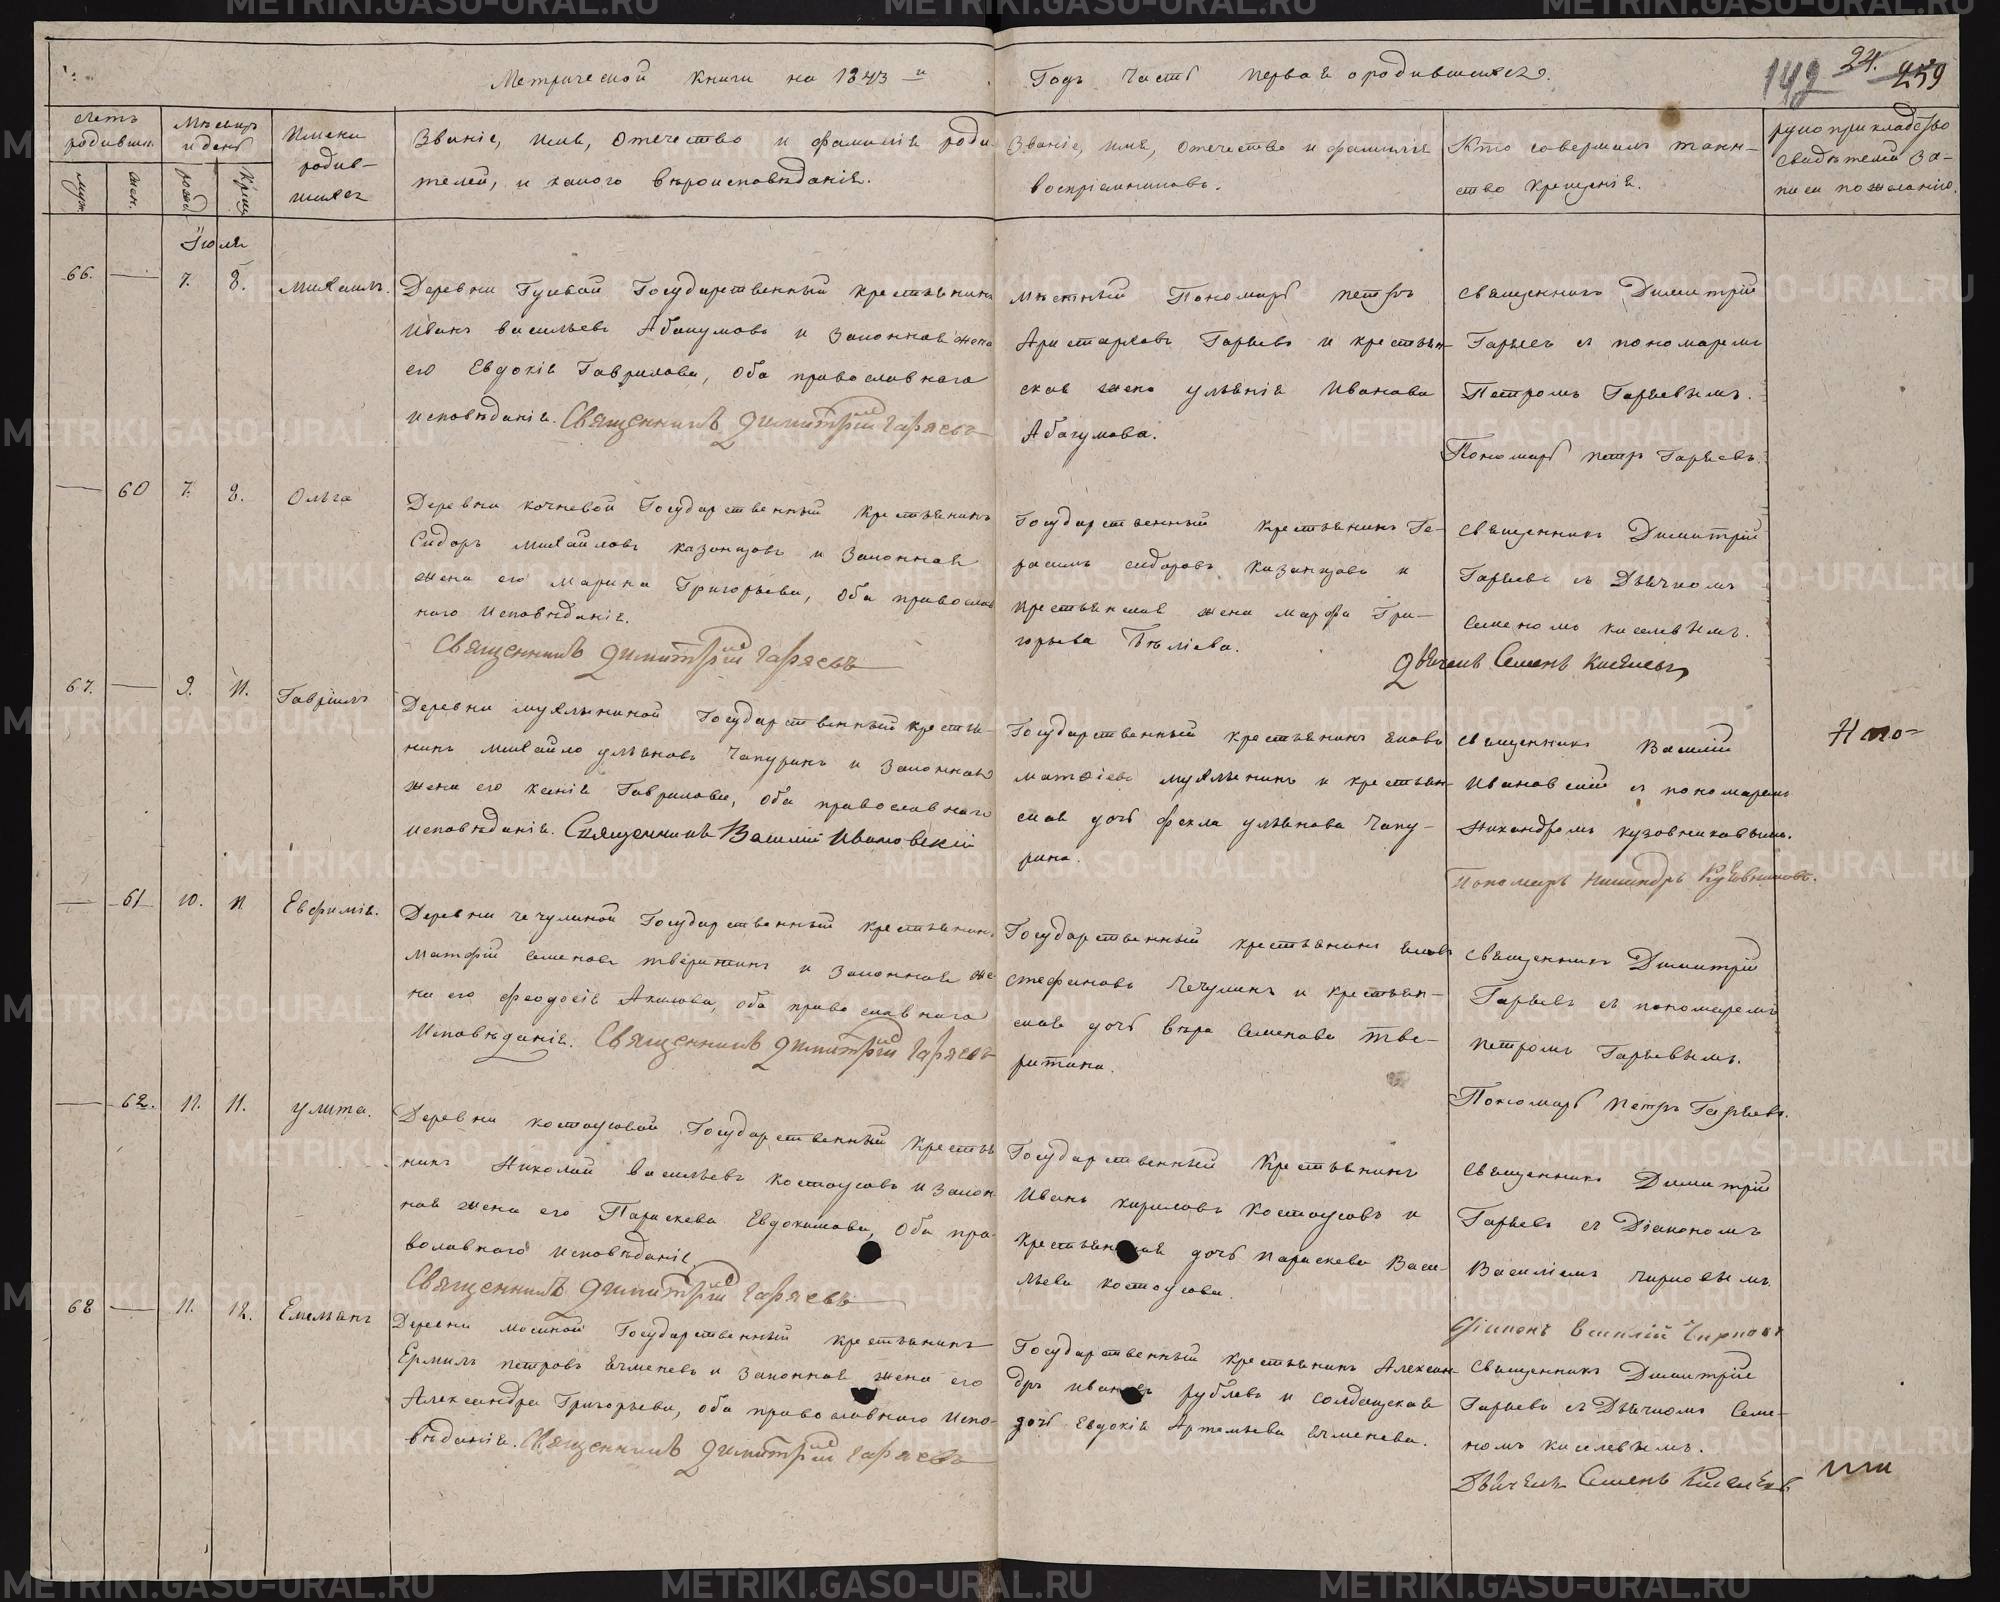 Метрической книги на 1843 й
Годъ часть первая о родившихся.
142 24. 259
Счетъ родивших.
Мѣсяцъ и день
Имена родив-
шихся
муж. жен. рожд. Крещ.
Званіе, имя, отчество и фамилія роди
телей, и какого вѣроисповѣданія.
Званіе, имя, отчество и фамилія
воспріемниковъ.
Кто совершалъ таин-
ство крещенія.
рукоприкладство
свидѣтелей за-
писи по желанію.
Іюля
66. — 7. 8. Михаилъ.
Деревни Гусевой Государственный крестьянинъ
Иванъ Васильевъ Абакумовъ и законная жена
его Евдокія Гаврилова, оба православнаго
исповѣданія. Священникъ Димитрій Гаряевъ
Мѣстный Пономарь Петръ
Аристарховъ Гаряевъ и крестьян-
ская жена Ульянія Иванова
Абакумова.
Священникъ Димитрій
Гаряевъ съ пономаремъ
Петромъ Гаряевымъ.
Пономарь Петръ Гаряевъ.
— 60 7. 8. Ольга
Деревни Кочневой Государственный крестьянинъ
Сидоръ Михайловъ Казанцовъ и законная
жена его Марина Григорьева, оба православ
наго исповѣданія.
Священникъ Димитрій Гаряевъ
Государственный крестьянинъ Ге-
расимъ Сидоровъ Казанцовъ и
крестьянская жена Марфа Гри-
горьева Бѣляева.
Священникъ Димитрій
Гаряевъ съ Дьячкомъ
Семеномъ Киселевымъ.
Дьячекъ Семенъ Киселевъ
67. — 9. 11. Гавріилъ
Деревни Мухлыниной Государственный крестья-
нинъ Михайло Ульяновъ Чапуринъ и законная
жена его Ксенія Гаврилова, оба православнаго
исповѣданія. Священникъ Василій Ивановскій
Государственный крестьянинъ Яковъ
Матвіевъ Мухлынинъ и крестьян-
ская дочь Фекла Ульянова Чапу-
рина.
Священникъ Василій
Ивановскій съ пономаремъ
Никандромъ Кузовниковымъ.
Пономарь Никандръ Кузовниковъ.
— 61 10. 11 Евфимія.
Деревни Чечулиной Государственный крестьянинъ
Матфій Семеновъ Тверитинъ и законная же
на его Феодосія Акилова, оба православнаго
Исповѣданія. Священникъ Димитрій Гаряевъ
Государственный крестьянинъ Яковъ
Стефановъ Чечулинъ и крестьян-
ская дочь Вѣра Семенова Тве-
ритина.
Священникъ Димитрій
Гаряевъ съ пономаремъ
Петромъ Гаряевымъ.
Пономарь Петръ Гаряевъ.
— 62. 11. 11. Улита.
Деревни Костоусовой Государственный Крестья
нинъ Николай Васильевъ Костоусовъ и закон
ная жена его Параскева Евдокимова, оба пра-
вославнаго исповѣданія
Священникъ Димитрій Гаряевъ
Государственный Крестьянинъ
Иванъ Кириловъ Костоусовъ и
Крестьянская дочь Параскева Васи-
льева Костоусова.
Священникъ Димитрій
Гаряевъ съ Діакономъ
Василіемъ Чирковымъ.
Діаконъ Василій Чирковъ
68 — 11. 12. Емельянъ
Деревни Мосиной Государственный крестьянинъ
Ермилъ Петровъ Ячменевъ и законная жена его
Александра Григорьева, оба православнаго испо-
вѣданія. Священникъ Димитрій Гаряевъ
Государственный крестьянинъ Алексан-
дръ Ивановъ Рублевъ и солдатская
дочь Евдокія Артемьева Ячменева.
Священникъ Димитрій
Гаряевъ съ Дьячкомъ Семе-
номъ Киселевымъ.
Дьячекъ Семенъ Киселевъ